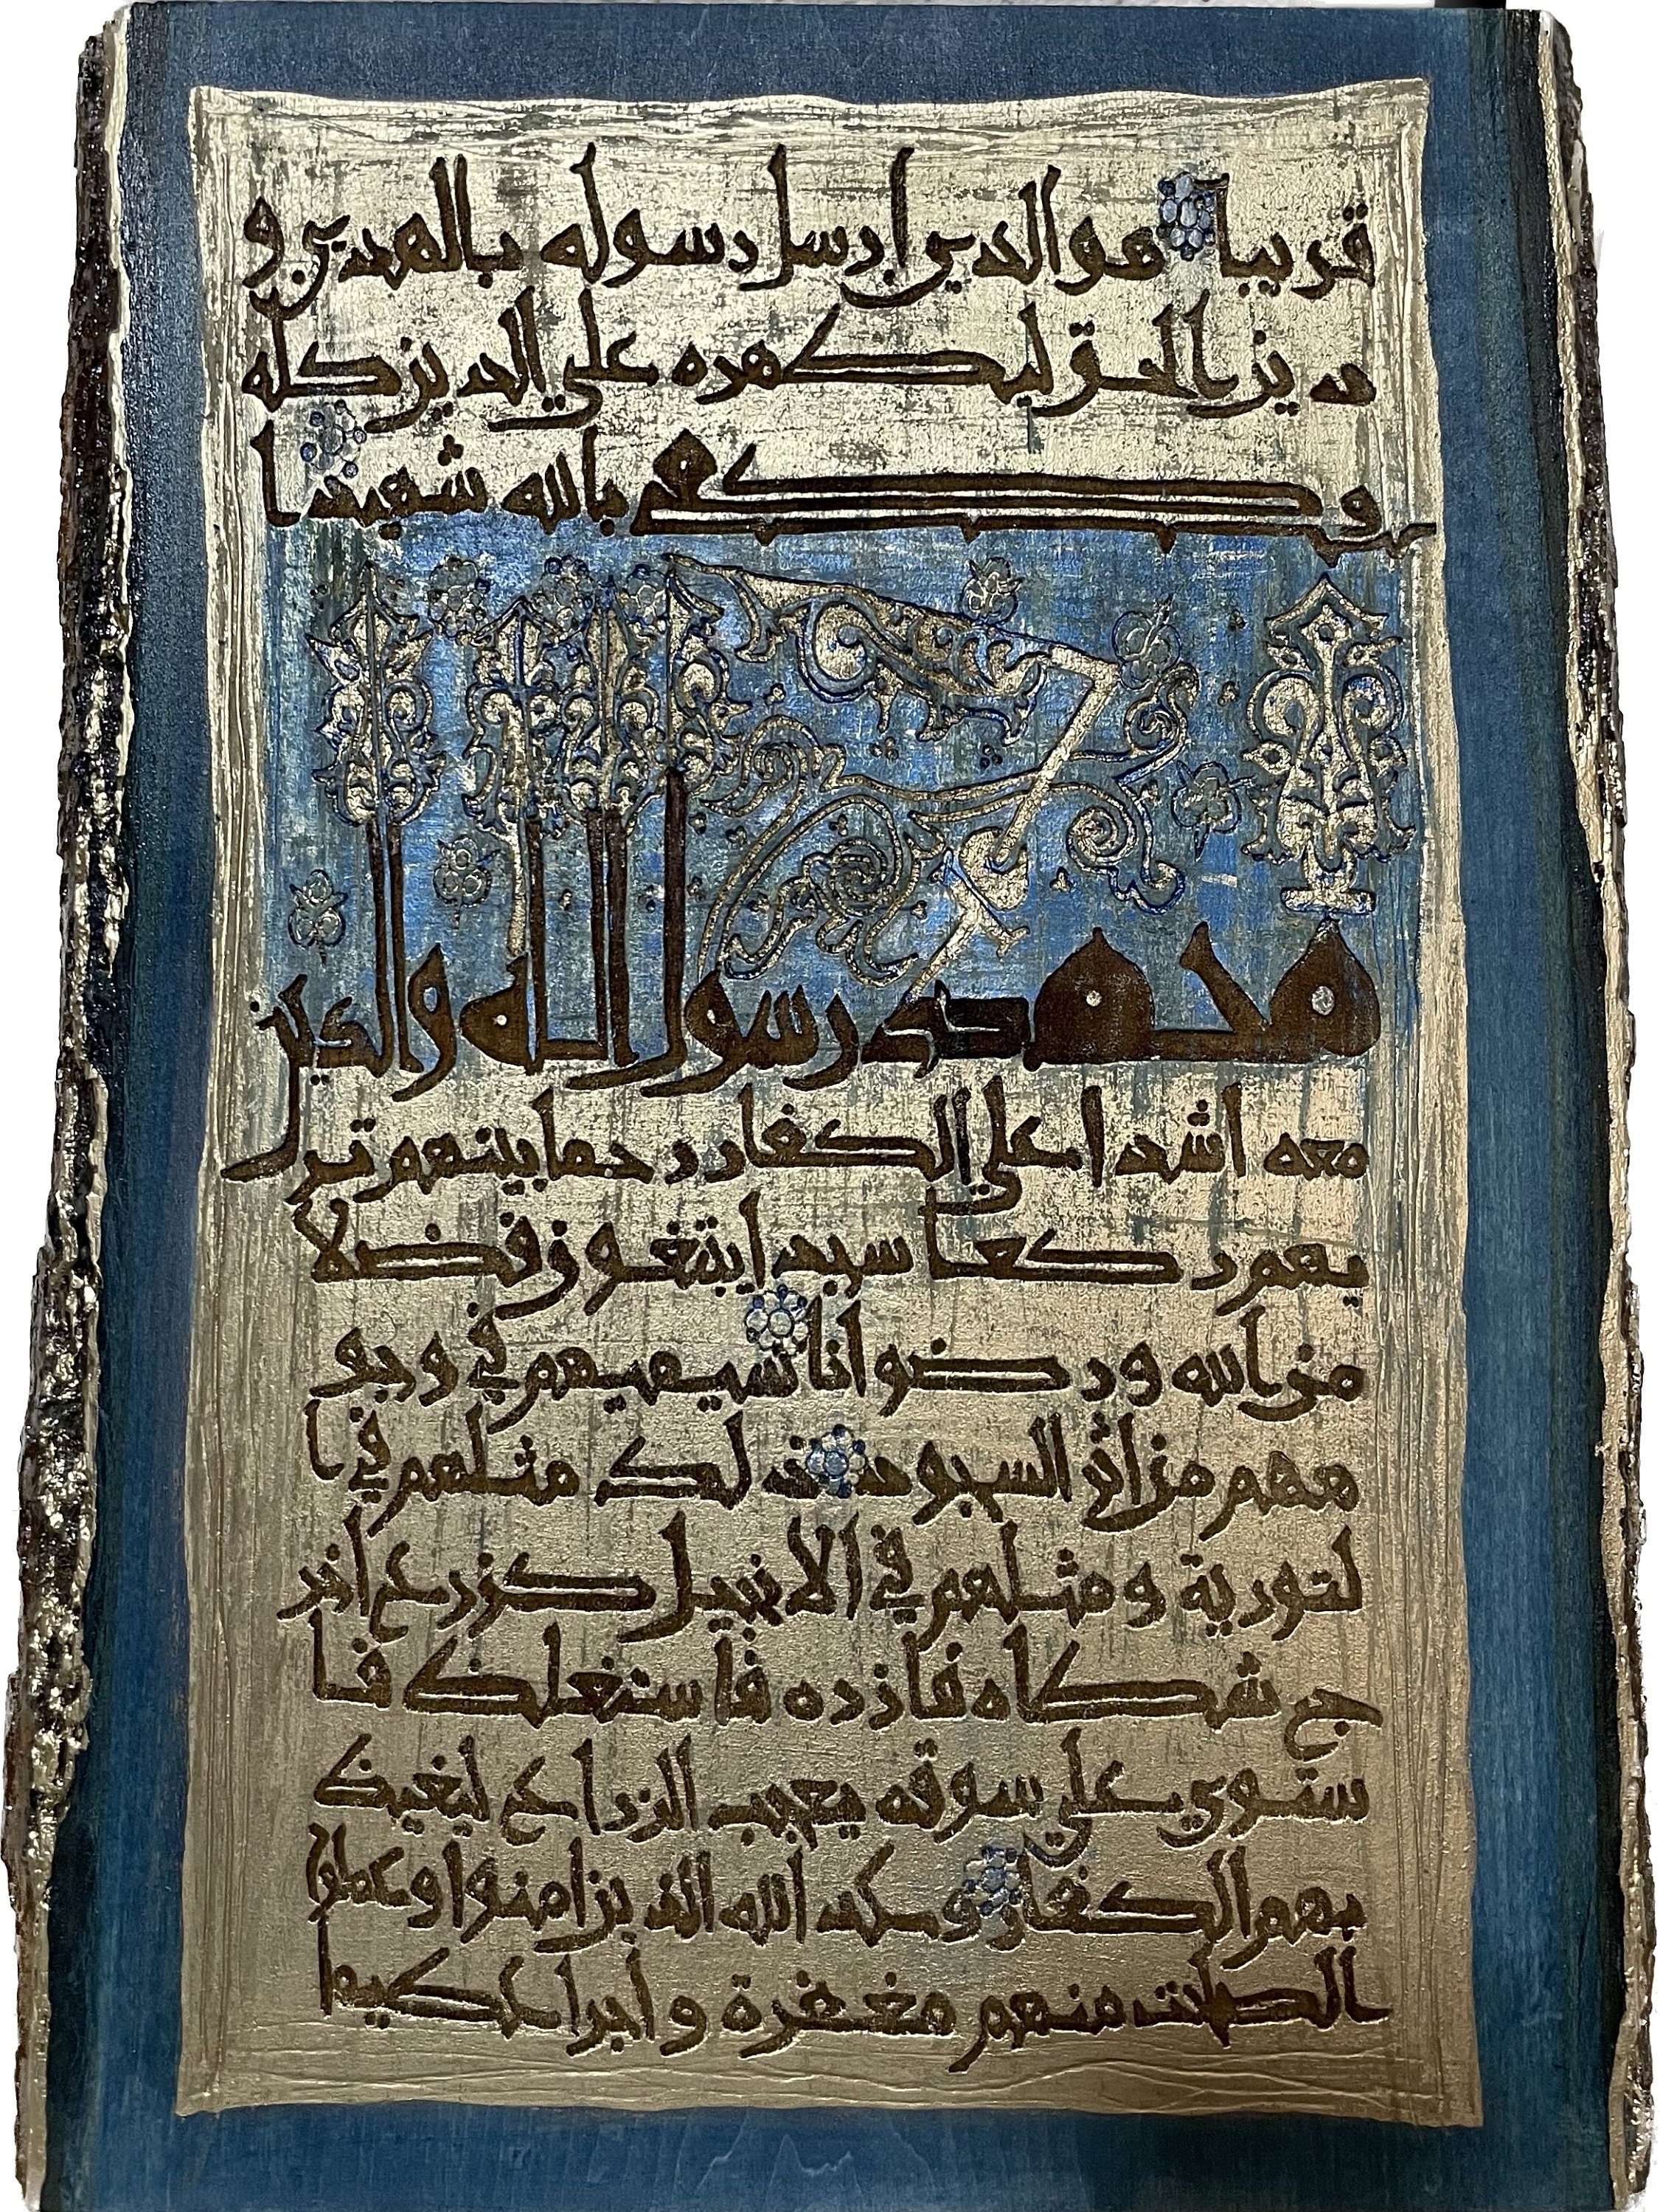 قريبا هو الذي ارسل رسوله بالهدي و
دين الحق ليظهره علي الدين كله
وكفي بالله شهيدا
محمد رسول الله والذين
معه اشدا علي الكفار رحما بينهم تر
يهم ركعا سجدا يبتغون فضلا
من الله ورضوانا سيميهم في وجو
ههم من اثر السجود ذلك مثلهم في ا
لتورية ومثلهم في الانجيل كزرع اخر
ج شطاه فازره فاستغلظ فا
ستوي علي سوقه يعجب الزراع ليغيظ
بهم الكفار وعد الله الذين امنوا وعملوا
الصلحت منهم مغفرة و اجرا عظيما